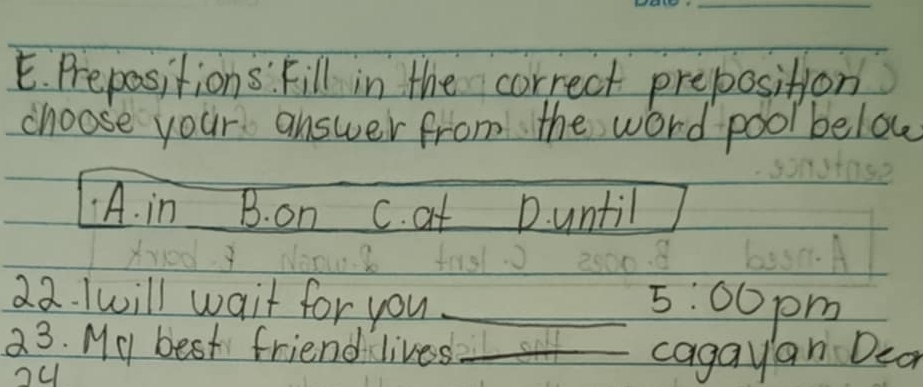 Date:
E. Prepositions: Fill in the correct preposition
choose your answer from the word pool below
A. in B. on C. at D. until
22. I will wait for you ________ 5:00 pm
23. My best friend lives ________ cagayan Deor
24